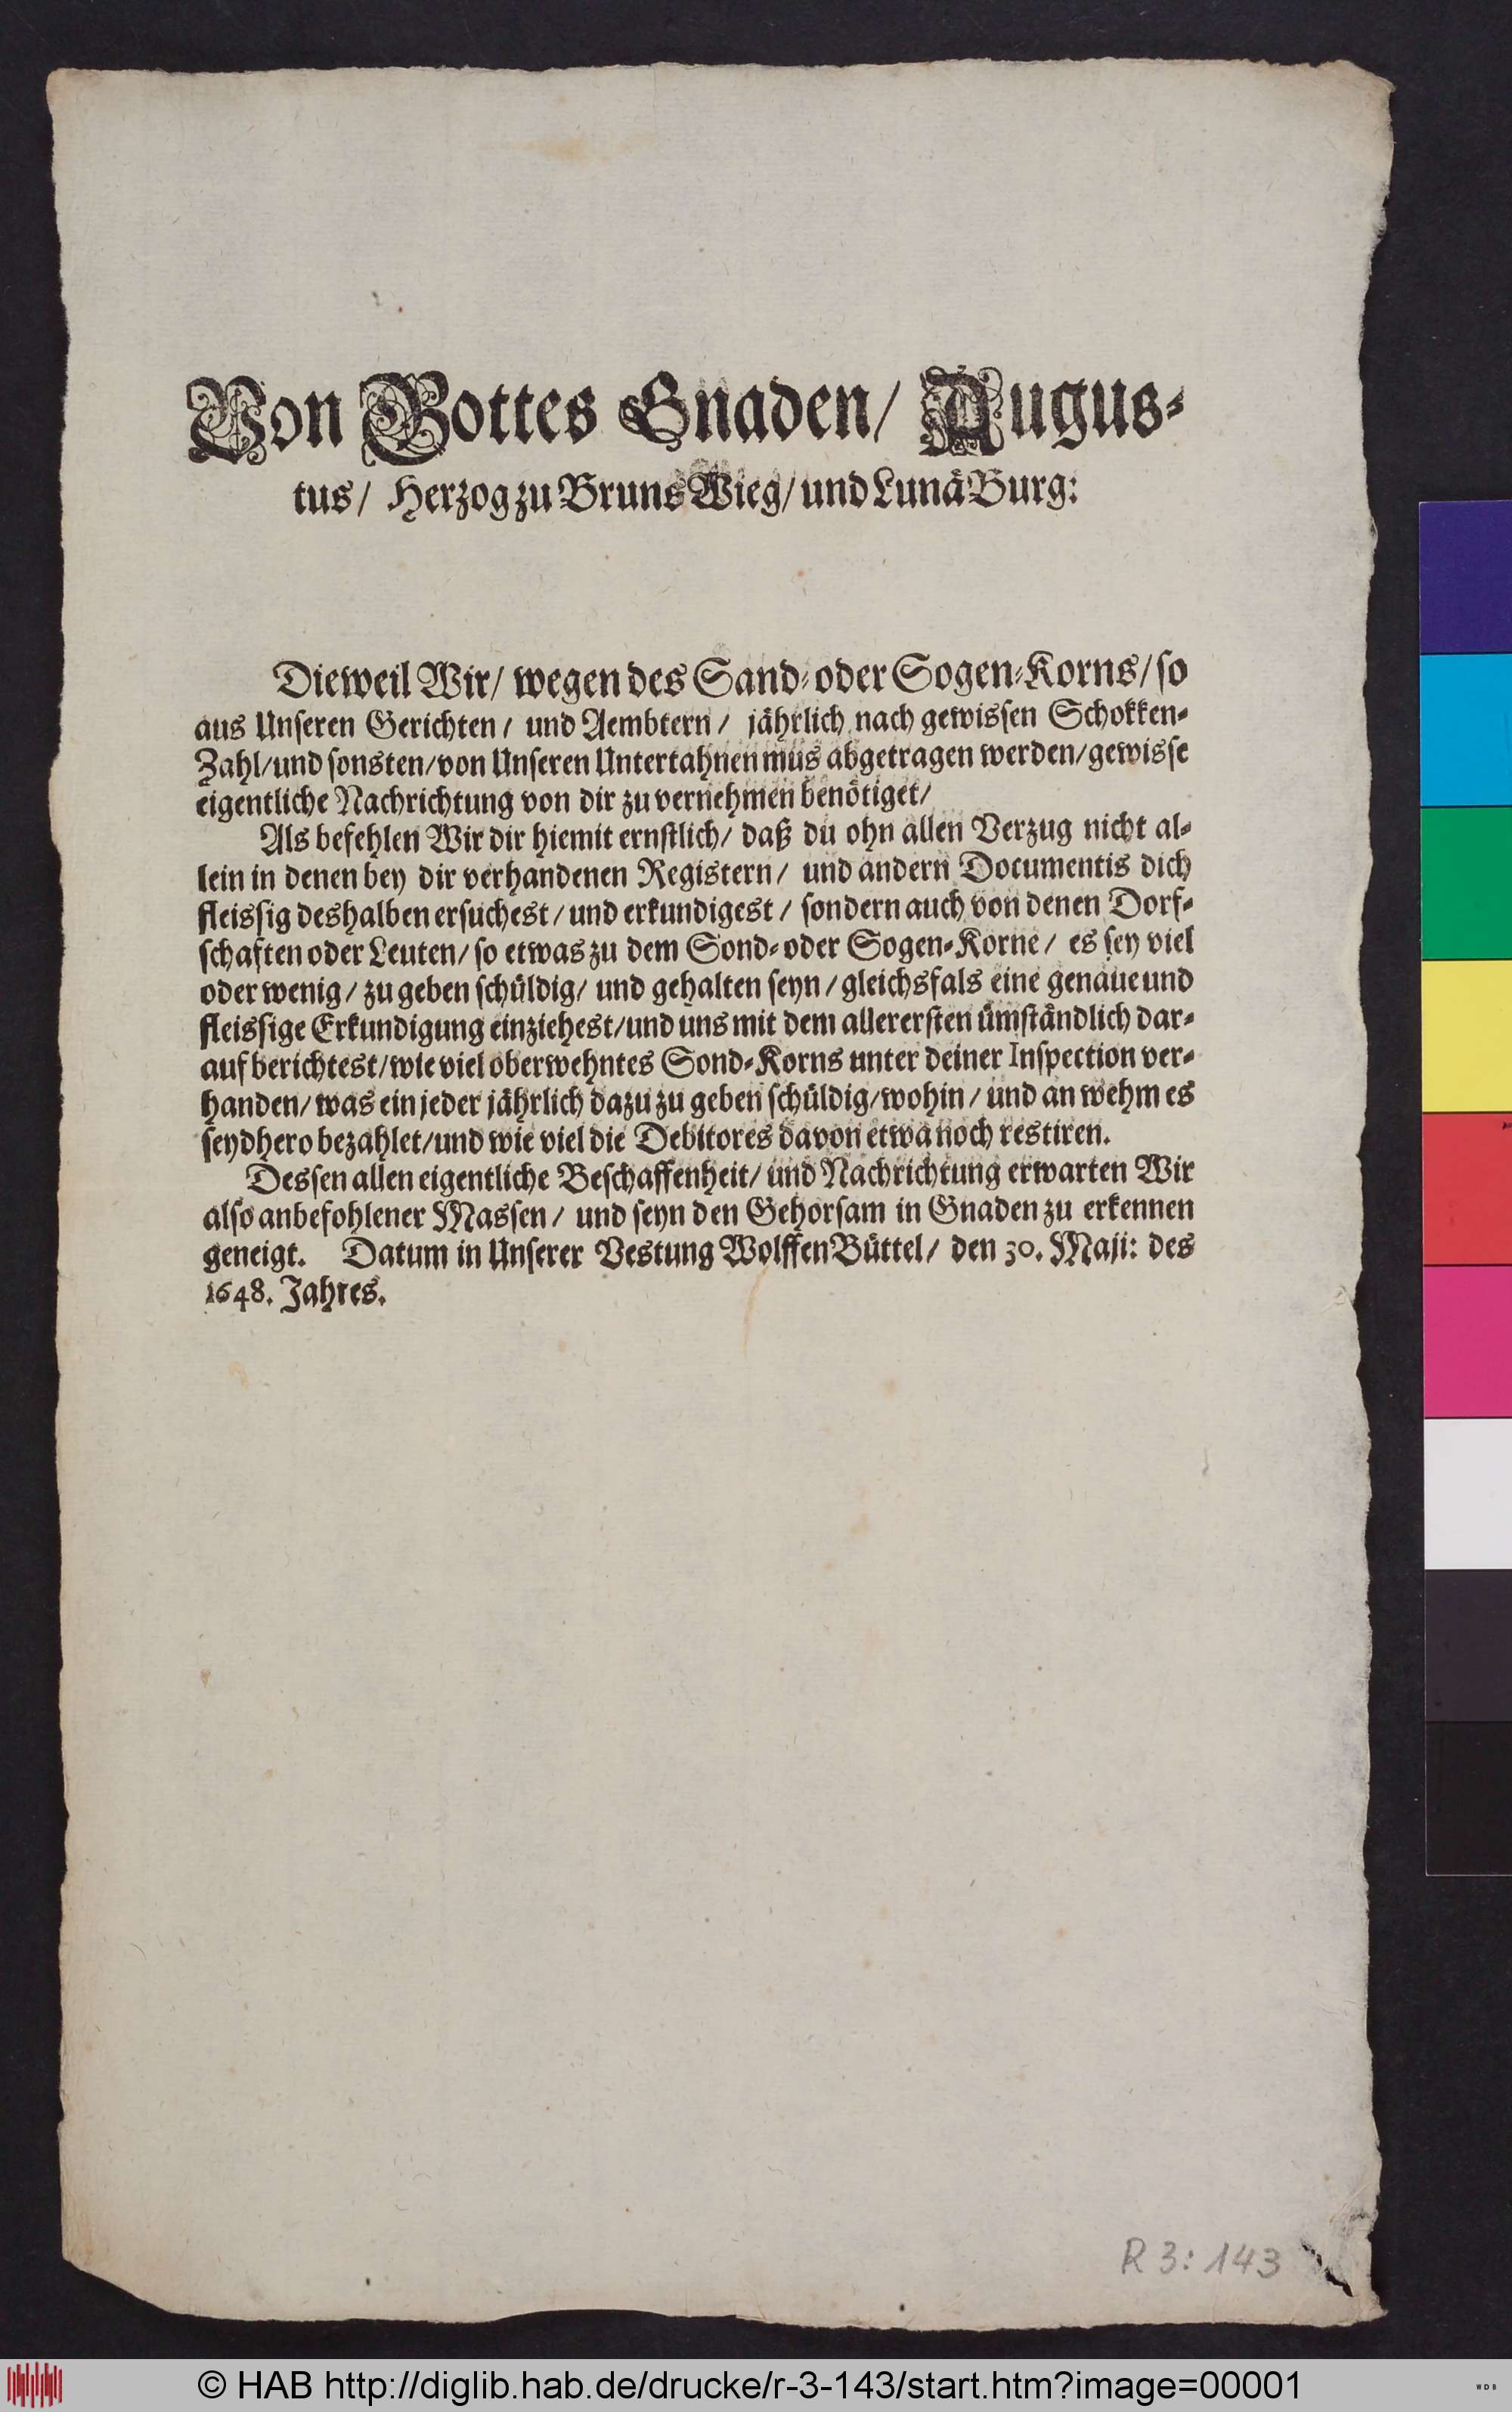 Von Gottes Gnaden/ Augus-
tus/ Herzog zu BrunsWieg/ und LunäBurg:
Dieweil Wir/ wegen des Sand- oder Sogen-Korns/ so
aus Unseren Gerichten/ und Aembtern/ jährlich nach gewissen Schokken-
Zahl/ und sonsten/ von Unseren Untertahnen mus abgetragen werden/ gewisse
eigentliche Nachrichtung von dir zu vernehmen benötiget/
Als befehlen Wir dir hiemit ernstlich/ daß du ohn allen Verzug nicht al-
lein in denen bey dir verhandenen Registern/ und andern Documentis dich
fleissig deshalben ersuchest/ und erkundigest/ sondern auch von denen Dorf-
schaften oder Leuten/ so etwas zu dem Sond- oder Sogen-Korne/ es sey viel
oder wenig/ zu geben schüldig/ und gehalten seyn/ gleichsfals eine genaue und
fleissige Erkundigung einziehest/ und uns mit dem allerersten ümständlich dar-
auf berichtest/ wie viel oberwehntes Sond-Korns unter deiner Inspection ver-
handen/ was ein jeder jährlich dazu zu geben schüldig/ wohin/ und an wehm es
seydhero bezahlet/ und wie viel die Debitores davon etwa noch restiren.
Dessen allen eigentliche Beschaffenheit/ und Nachrichtung erwarten Wir
also anbefohlener Massen/ und seyn den Gehorsam in Gnaden zu erkennen
geneigt. Datum in Unserer Vestung WolffenBüttel/ den 30. Maji: des
1648. Jahres.
R 3: 143
© HAB http://diglib.hab.de/drucke/r-3-143/start.htm?image=00001
WDB